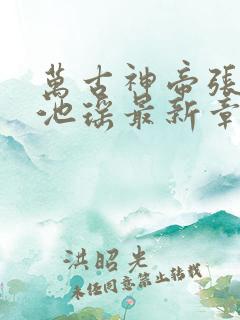 萬古神帝張
池瑤最新章
洪昭光
未經同意禁止轉載